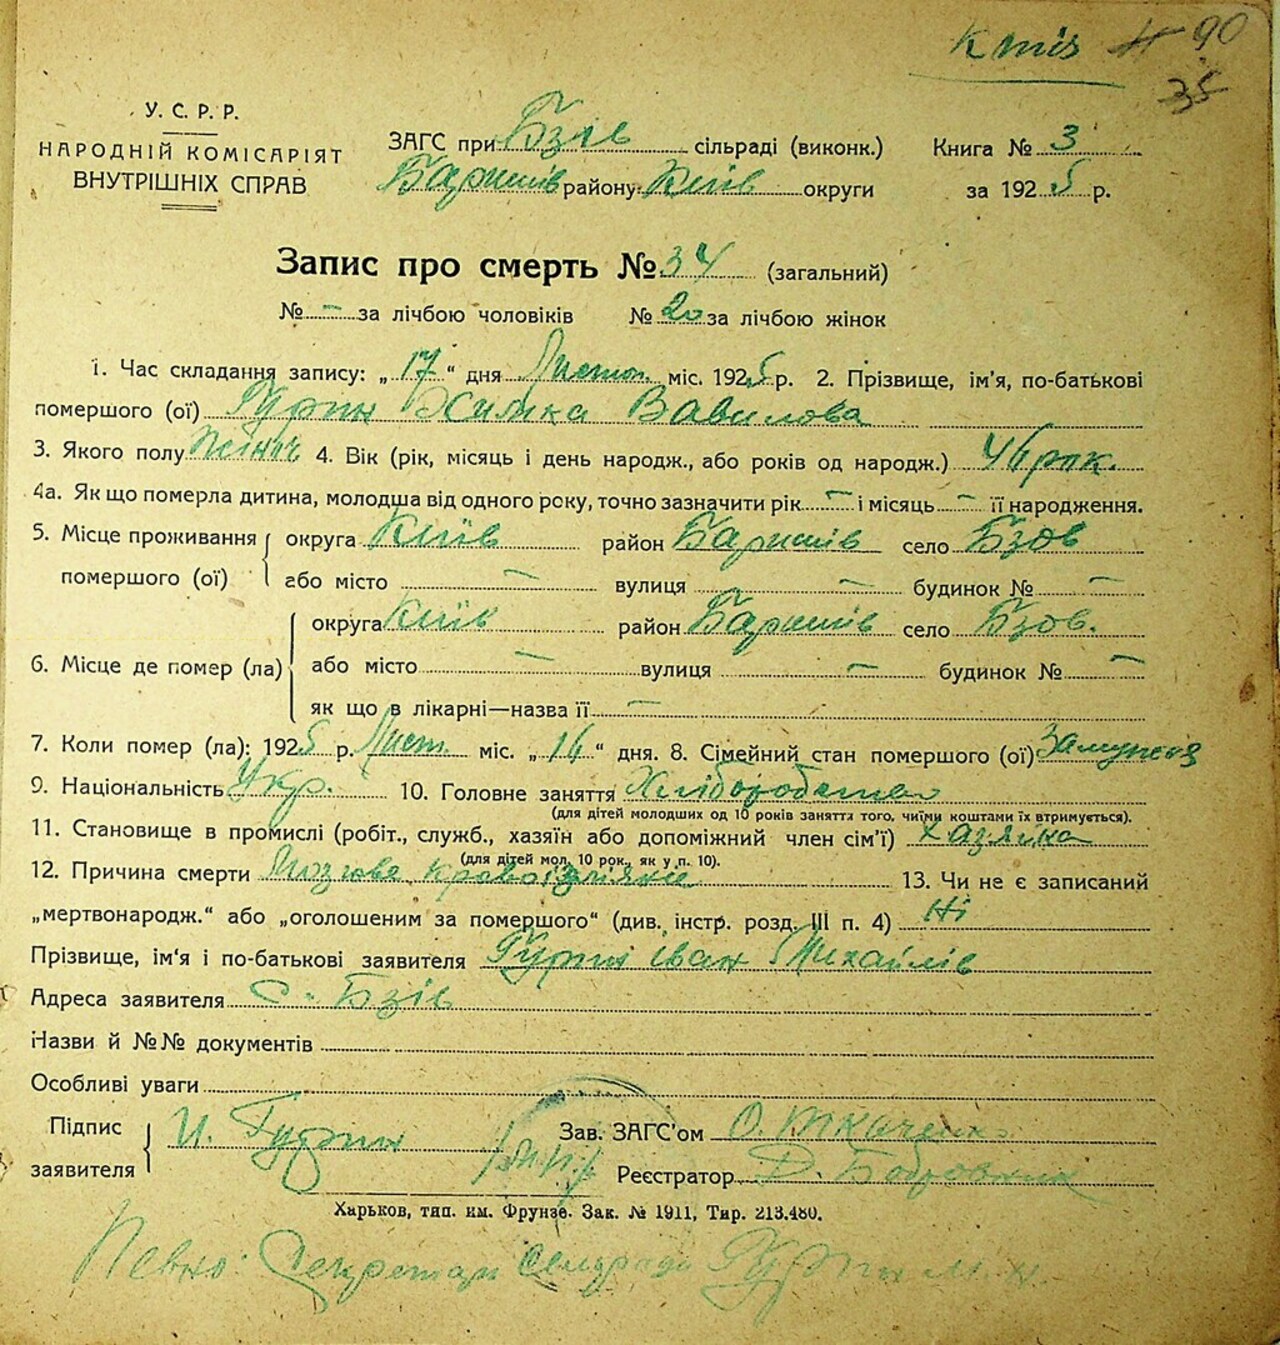 Копія 90
35
У. С. Р. Р.
НАРОДНІЙ КОМІСАРІЯТ
ВНУТРІШНІХ СПРАВ
ЗАГС при Бзів сільраді (виконк.) Книга № 3
Баришів району Київ округи за 1925 р.
Запис про смерть № 34 (загальний)
№ — за лічбою чоловіків № 20 за лічбою жінок
1. Час складання запису: „17“ дня Листоп. міс. 1925 р. 2. Прізвище, ім'я, по-батькові
помершого (ої) Гурин Химка Вавилова
3. Якого полу Жіноч. 4. Вік (рік, місяць і день народж., або років од народж.) 46 рок.
4а. Як що померла дитина, молодша від одного року, точно зазначити рік — і місяць — її народження.
5. Місце проживання помершого (ої) округа Київ район Баришів село Бзов
або місто — вулиця — будинок № —
6. Місце де помер (ла) округа Київ район Баришів село Бзов.
або місто — вулиця — будинок № —
як що в лікарні—назва її —
7. Коли помер (ла): 1925 р. Лист. міс. „16“ дня. 8. Сімейний стан помершого (ої) Замужня
9. Національність Укр. 10. Головне заняття Хліборобство
(для дітей молодших од 10 років заняття того, чиїми коштами їх втримується).
11. Становище в промислі (робіт., служб., хазяїн або допоміжний член сім'ї) Хазяйка
(для дітей мол. 10 рок., як у п. 10).
12. Причина смерти Мозгове 13. Чи не є записаний
„мертвонародж.“ або „оголошеним за помершого“ (див. інстр. розд. III п. 4) Ні
Прізвище, ім'я і по-батькові заявителя Гурин Іван Михайлів
Адреса заявителя С. Бзів
Назви й №№ документів
Особливі уваги
Підпис заявителя И. Гурин /М.П./ Зав. ЗАГС'ом О. Ткаченко
Реєстратор Д. Бобровник
Харьков, тип. им. Фрунзе. Зак. № 1911, Тир. 213.480.
Певно: Секретар Сільради Гурин